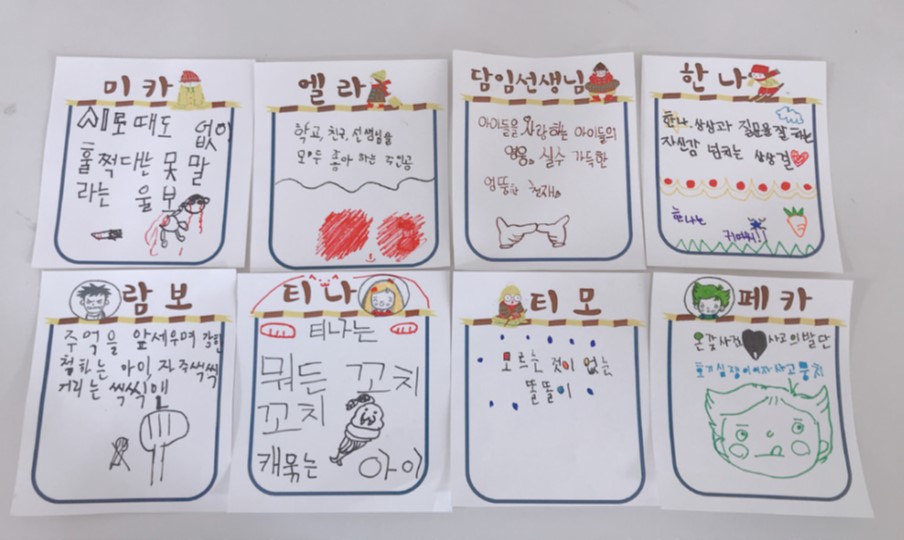 미카
시도때도 없이
훌쩍대는 못 말
리는 울보
엘라
학교, 친구, 선생님을
모두 좋아 하는 주인공
담임선생님
아이들을 사랑하는 아이들의
영웅 실수 가득한
엉뚱한 천재
한나
한나, 상상과 질문을 잘 하는
자신감 넘치는 상상걸
한나는
귀여워!!
람보
주먹을 앞세우며 강한
척 하는 아이, 자주 씩씩
거리는 씩씩이
티나
티나는
뭐든 꼬치
꼬치
캐묻는 아이
티모
모르는 것이 없는
똘똘이
페카
온갖 사건 사고의 발단
호기심쟁이이자 사고뭉치